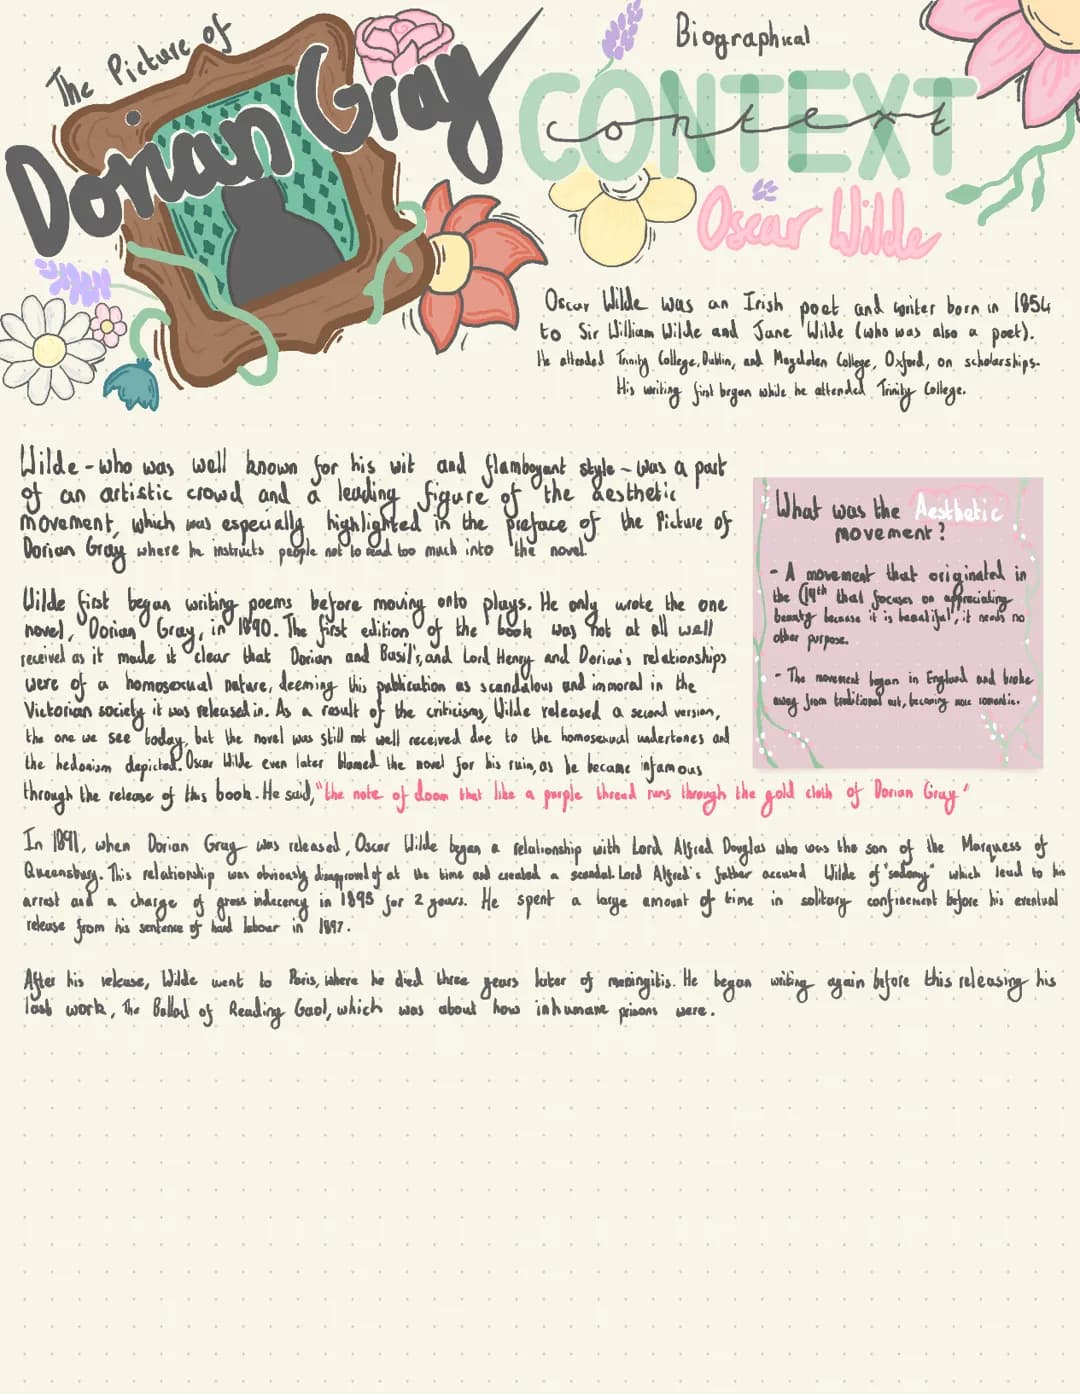 The Picture of
Dorian Gray
Biographical
CONTEXT
context
Oscar Wilde
Oscar Wilde was an Irish poet and writer born in 1854
to Sir William Wilde and Jane Wilde (who was also a poet).
He attended Trinity College, Dublin, and Magdalen College, Oxford, on scholarships.
His writing first began while he attended Trinity College.
Wilde - who was well known for his wit and flamboyant style - was a part
of an artistic crowd and a leading figure of the aesthetic
movement, which was especially highlighted in the preface of the Picture of
Dorian Gray where he instructs people not to read too much into the novel.
Wilde first began writing poems before moving onto plays. He only wrote the one
novel, Dorian Gray, in 1890. The first edition of the book was not at all well
received as it made it clear that Dorian and Basil's, and Lord Henry and Dorian's relationships
were of a homosexual nature, deeming this publication as scandalous and immoral in the
Victorian society it was released in. As a result of the criticisms, Wilde released a second version,
the one we see today, but the novel was still not well received due to the homosexual undertones and
the hedonism depicted. Oscar Wilde even later blamed the novel for his ruin, as he became infamous
through the release of this book. He said, "the note of doom that like a purple thread runs through the gold cloth of Dorian Gray"
What was the Aesthetic
movement?
- A movement that originated in
the C19th that focuses on appreciating
beauty because it is beautiful, it needs no
other purpose.
- The movement began in England and broke
away from traditional art, becoming more romantic.
In 1891, when Dorian Gray was released, Oscar Wilde began a relationship with Lord Alfred Douglas who was the son of the Marquess of
Queensbury. This relationship was obviously disapproved of at the time and created a scandal. Lord Alfred's father accused Wilde of "sodomy" which lead to his
arrest and a charge of gross indecency in 1895 for 2 years. He spent a large amount of time in solitary confinement before his eventual
release from his sentence of hard labour in 1897.
After his release, Wilde went to Paris, where he died three years later of meningitis. He began writing again before this releasing his
last work, The Ballad of Reading Gaol, which was about how inhumane prisons were.